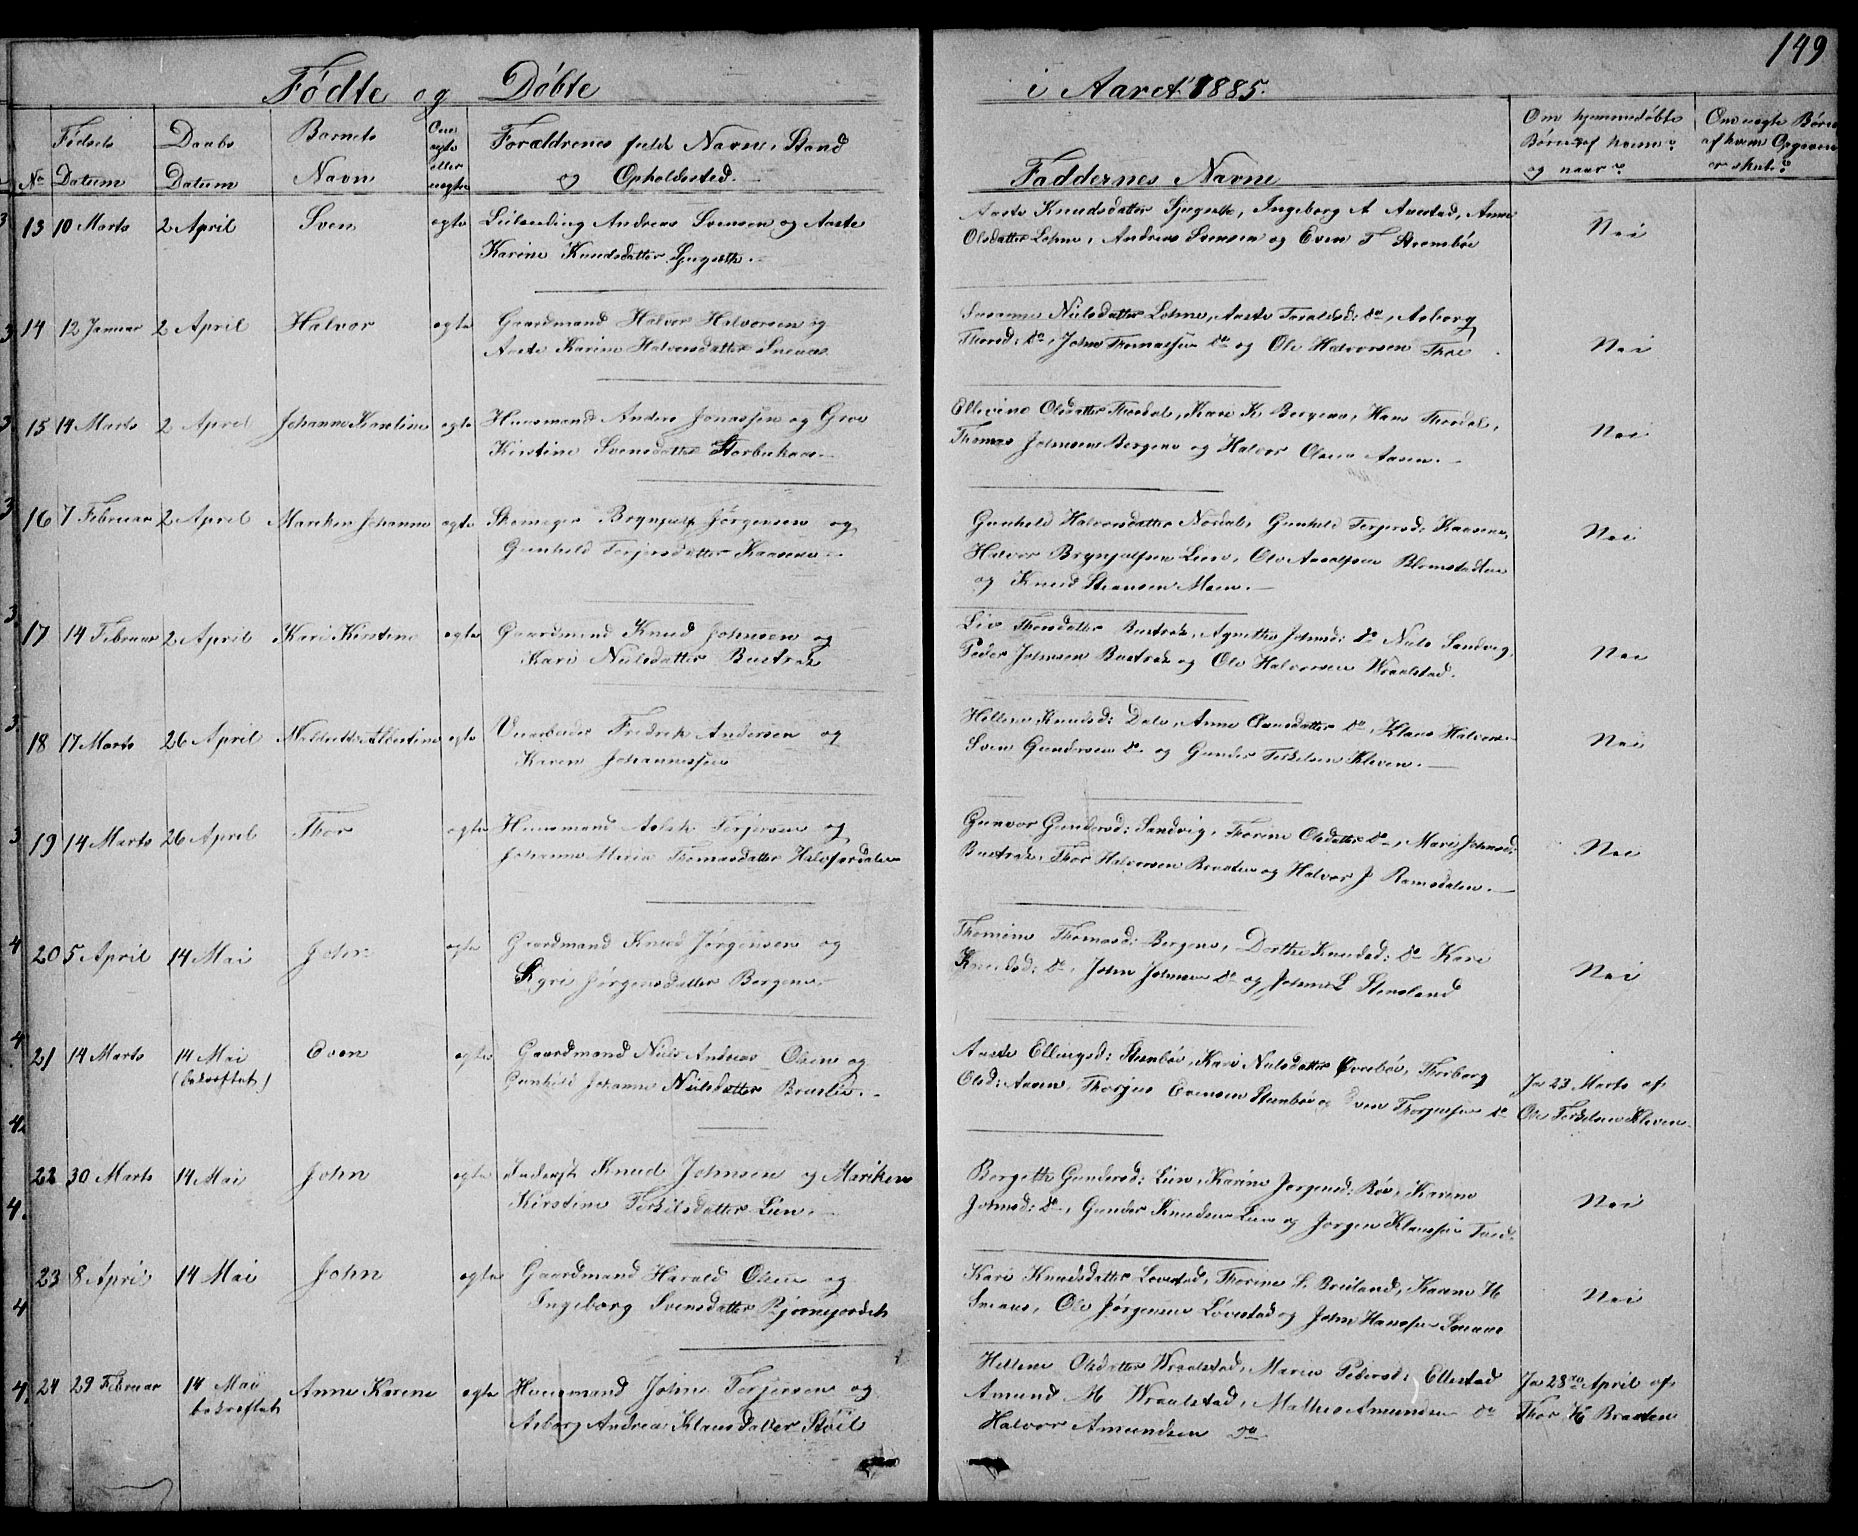 149
Fødte og Døbte i Aaret 1885.
No
Fødsels Datum
Daabs Datum
Barnets Navn
Om ægte eller uægte
Forældrenes fulde Navne, Stand og Opholdssted.
Faddernes Navne
Om hjemmedøbte Børn & af hvem? og naar?
Om uægte Børn af hvem Opgaven er skeet?
13 10 Marts 2 April Sven ægte Leilænding Andreas Svensen og Aaste
Karine Knudsdatter Ljugseth.
Aaste Knudsdatter Ljugseth, Ingeborg A Averstad, Anne
Olsdatter Lohne, Andreas Svensen og Even T Strømbøe
Nei
14 12 Januar 2 April Halvor ægte Gaardmand Halvor Halvorsen og
Aaste Karine Halvorsdatter Snenes
Susanne Nielsdatter Lohne, Aaste Taraldsd: do, Asborg
Thorsd: do, John Thomassen do og Ole Halvorsen Thoe
Nei
15 14 Marts 2 April Johanne Karoline ægte Huusmand Anders Jonassen og Groe
Kirstine Svensdatter Storbukaas
Ellevine Olsdatter Thordal, Kari K. Bergene, Hans Thordal,
Thomas Johnsen Bergene og Halvor Olsen Aasen.
Nei
16 7 Februar 2 April Mariken Johanne ægte Skomager Brynjulf Jørgensen og
Gunhild Terjersdatter Kaasene
Gunhild Halvorsdatter Nordal, Gunhild Terjersd: Kaasene,
Halvor Brynjulfsen Lien, Ole Aasulfsen Blomstadtne
og Knud Steansen Moen.
Nei
17 14 Februar 2 April Kari Kirstine ægte Gaardmand Knud Johnsen og
Kari Nielsdatter Bustrak
Liv Thorsdatter Bustrak, Agnethe Johnsd: do Niels Sandvig,
Peder Johnsen Bustrak og Ole Halvorsen Wraalstad.
Nei
18 17 Marts 26 April Maldrette Albertine ægte Fredrik Andersen og
Karen Johannessen
Hellene Knudsd: Dale, Anne Clausdatter do, Klaus Halvors
Sven Gundersen do og Gunder Terkelsen Kleven.
Nei
19 14 Marts 26 April Thor ægte Huusmand Aslak Terjersen og
Johanne Maria Thomasdatter Halvfardalen
Gunvor Gundersd: Sandvig, Thorine Olsdatter do, Mari Johnsd:
Bustrak, Thor Halvorsen Braaten og Halvor J Ramsdalen.
Nei
20 5 April 14 Mai John ægte Gaardmand Knud Jørgensen og
Sigri Jørgensdatter Bergene.
Thomine Thomasd: Bergene, Dorthe Knudsd: do Kari
Knudsd: do, John Johnsen do og Johne L Stensland
Nei
21 14 Marts 14 Mai (bekræftet) Even ægte Gaardmand Niels Andreas Olsen og
Gunhild Johanne Nielsdatter Braalie.
Aaste Ellingsd: Steenbøe, Kari Nielsdatter Øvrebøe, Thorborg
Olsd: Aasen, Thorgus Evensen Steenbøe og Even Thorgussen do
Ja 23 Marts af
Ole Terkelsen Kleven
22 30 Marts 14 Mai John ægte Inderst Knud Johnsen og Mariken
Kirstine Terkilsdatter Lien.
Bergethe Gundersd: Lien, Karine Jørgensd: Bøe, Karine
Johnsd: do, Gunder Knudsen Lien og Jørgen Klaussen
Nei
23 8 April 14 Mai John ægte Gaardmand Harald Olsen og
Ingeborg Svensdatter Bjørnejordet
Kari Knudsdatter Lovestad, Thorine S. Breiland, Karine H
Snenes, Ole Jørgensen Løvestad og John Hanssen Snenes
Nei
24 29 Februar 14 Mai bekræftet Anne Karene ægte Huusmand John Terjersen og
Asborg Andrea Klausdatter Støil
Hellene Olsdatter Wraalstad, Maren Pedersd: Ellestad
Amund M Wraalstad, Mathis Amundsen do
Halvor Amundsen do
Ja 28de April af
Thor H Braaten